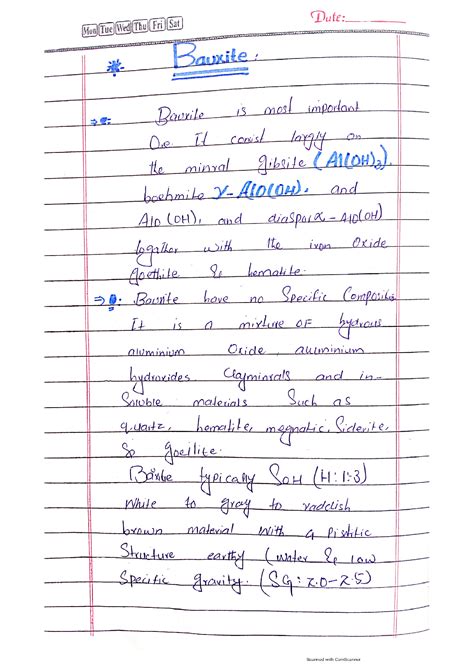 Mon Tue Wed Thu Fri Sat
Date:
Bauxite.
Bauxite is most important
Ore It consist largly on
the minral gibsite (Al(OH)3),
boehmite γ-AlO(OH), and
AlO (OH), and diaspor α-AlO(OH)
together with the iron Oxide
goethite & hematite.
Bauxite have no Specific Composition
It is a mixture OF hydrous
aluminium Oxide, aluminium
hydroxides Clayminrals and in-
Soluble materials Such as
quartz, hematite, megnatic, Siderite,
& goetite.
typically SOH (H:1:3)
While to gray to raddish
brown material With a Pisltic
Structure earthy (Water & law
Specific gravity. (SG: 2.0-2.5)
Scanned with CamScanner